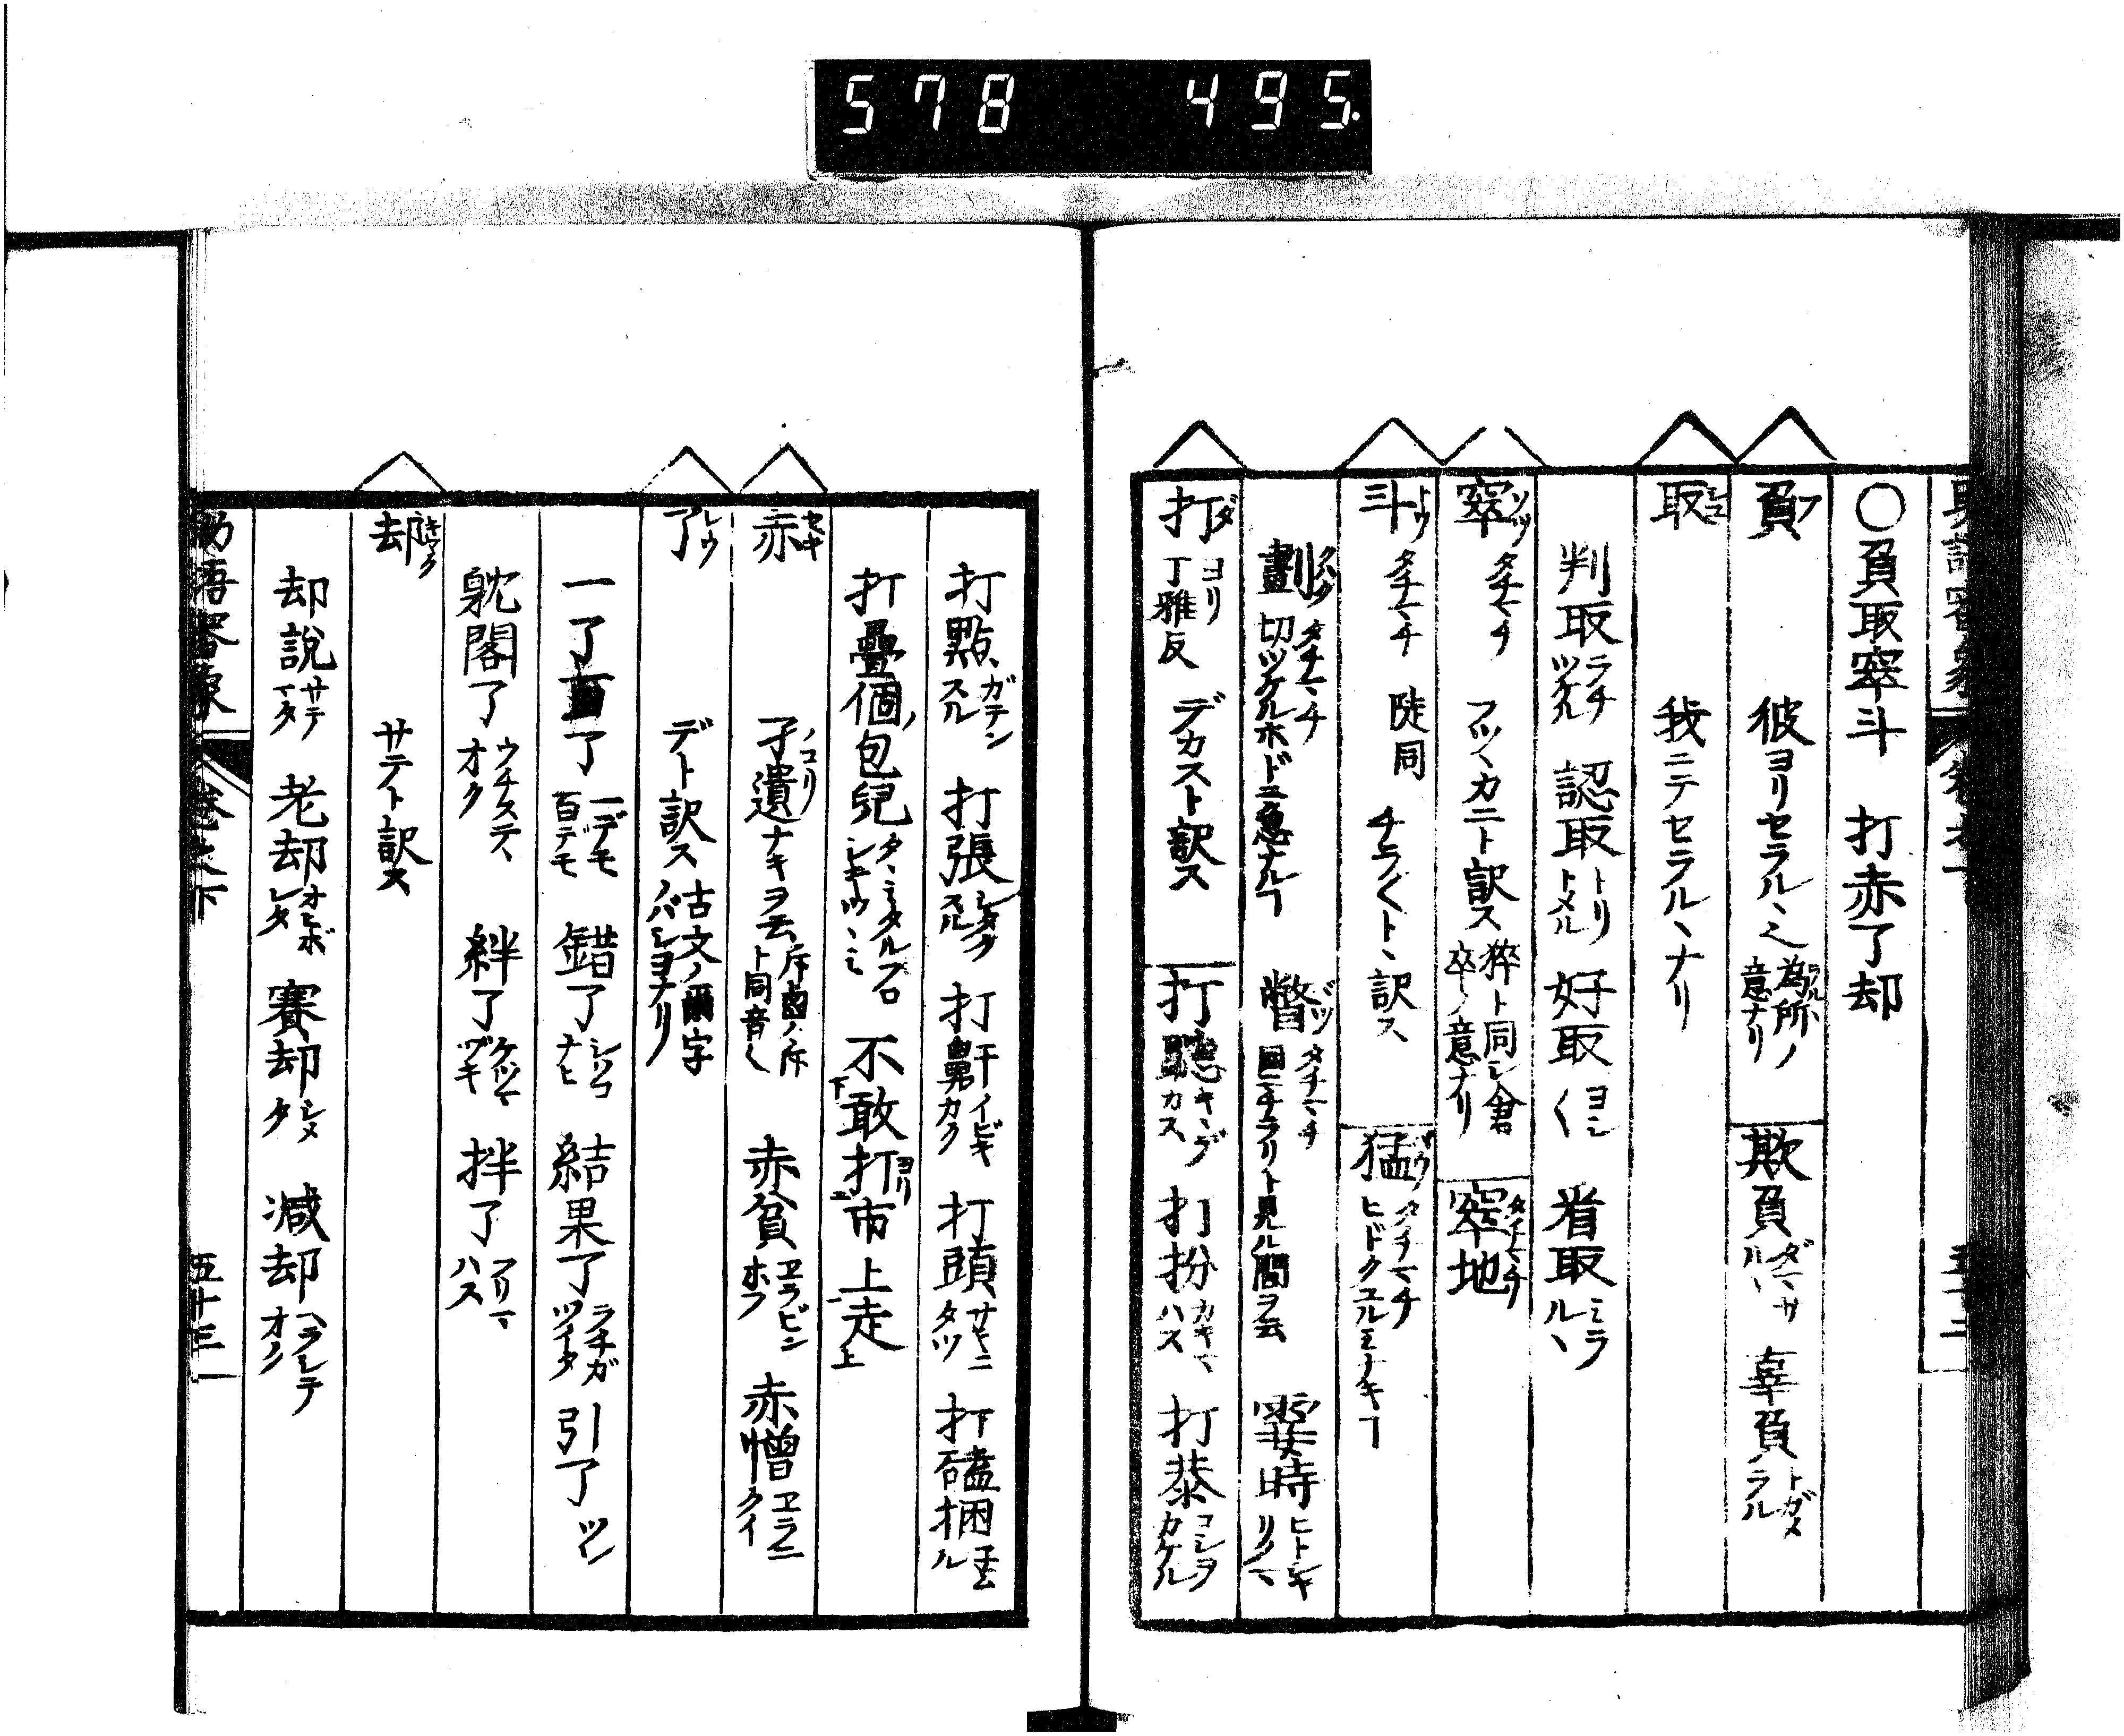 578 495.
○負取窣斗 打赤了却
負フ 彼ヨリセラルヽ也 為所ラルヽノ意ナリ 欺負ダマサルヽ 辜負トガメラル
取シユ 我ニテセラルヽナリ
判取ラチツケル 認取トリトメル 好取ヨシ〱 着取ミラルヽ
窣ソツ タチマチ フツヽカニト訳ス 猝ト同シ倉卒ノ意ナリ 窣地タチマチ
斗トウ タチマチ 陡同 チラ〱トヽ訳ス 猛マウ タチマチ ヒドクユルミナキヿ
劃クハク タチマチ 切ツケルホドニ急ナルヿ 瞥ベツ タチマチ 目ニチラリト見ル間ヲ云 霎時ヒトシキリノマ
打ダ ヨリ 丁雅反 デカスト訳ス 打聴キヽデカス 打扮カキマハス 打恭コシヲカケル
打點ガテンスル 打張シタクスル 打鼾イビキカク 打頭サキニタツ 打磕捆
打疊個ノ包兒タヽミタルフロシキツヽミ 不敢打ヨリ市上走
赤セキ 孑遺ノコリナキヲ云 斥鹵ノ斥ト同音也 赤貧ヱラビンボフ 赤憎ヱラニクイ
了レウ デト訳ス 古文ノ爾字ノバシヨナリ
一了百了一デモ百デモ 錯了シソコナヒ 結果了ラチガツイタ 引了ツレ
躭閣了ウチステヽオク 絆了ケツマヅキ 拌了フリマハス
却キヤク サテト訳ス
却説サテマタ 老却オヒボレタ 賽却シメタ 減却ヘラシテオク
助語審象 卷之下 五十三